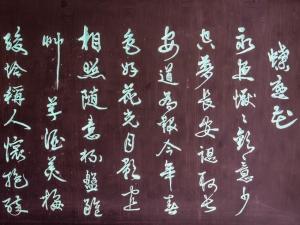 蝶戀花
永夜懨懨歡意少
空夢長安認取長
安道為報今年春
色好花光月影宜
相照隨意杯盤雖
草草酒美梅
酸恰稱人懷抱醉